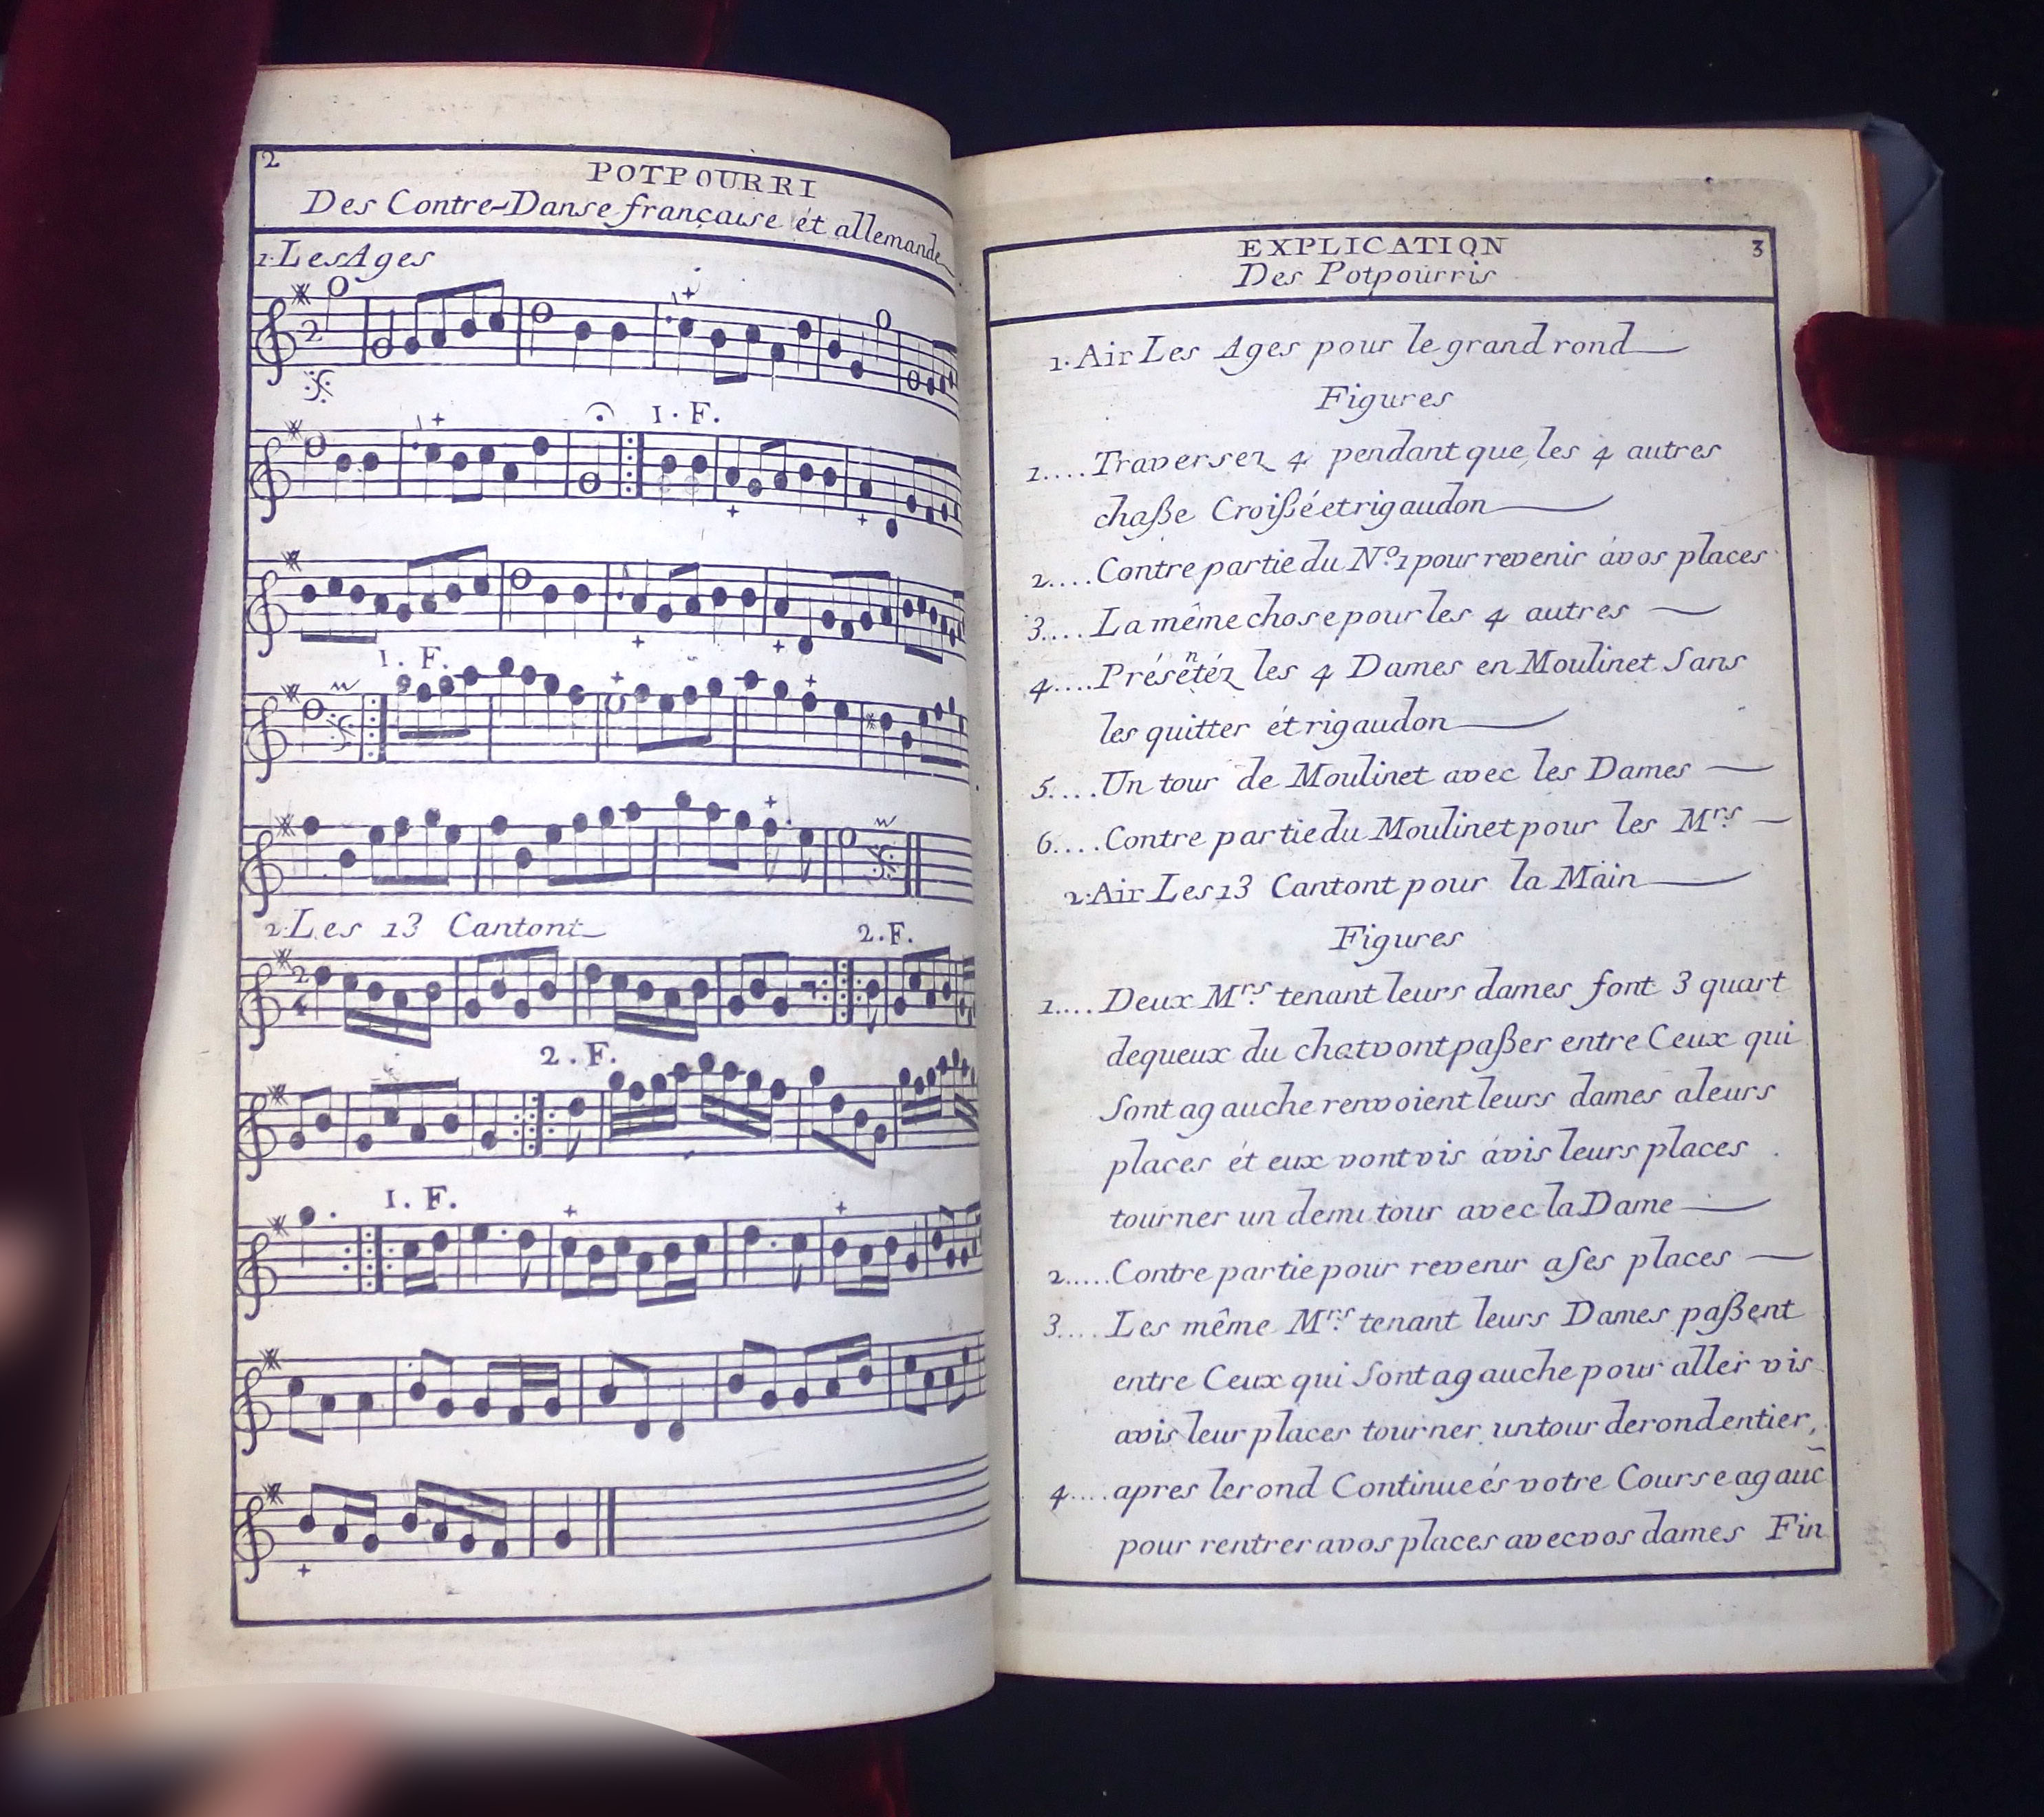 2
POTPOURRI
Des Contre-Danse française ét allemande
1. Les Ages
2
1. F.
1. F.
2. Les 13 Cantont
2. F.
2
4
2. F.
1. F.
EXPLICATION
3
Des Potpourris
1. Air Les Ages pour le grand rond
Figures
1.... Traversez 4 pendant que les 4 autres
chaße Croißé et rigaudon
2.... Contre partie du No. 1 pour revenir á vos places
3.... La même chose pour les 4 autres
4.... Présẽtéz les 4 Dames en Moulinet Sans
les quitter ét rigaudon
5.... Un tour de Moulinet avec les Dames
6.... Contre partie du Moulinet pour les Mrs.
2. Air Les 13 Cantont pour la Main
Figures
1.... Deux Mrs. tenant leurs dames font 3 quart
de queux du chat vont paßer entre Ceux qui
Sont a gauche renvoient leurs dames a leurs
places ét eux vont vis á vis leurs places
tourner un demi tour avec la Dame
2..... Contre partie pour revenir a Ses places
3.... Les même Mrs. tenant leurs Dames paßent
entre Ceux qui Sont a gauche pour aller vis
avis leur places tourner un tour de rond entier,
4.... apres le rond Continueés votre Course a gauc̃
pour rentrer a vos places avec vos dames Fin